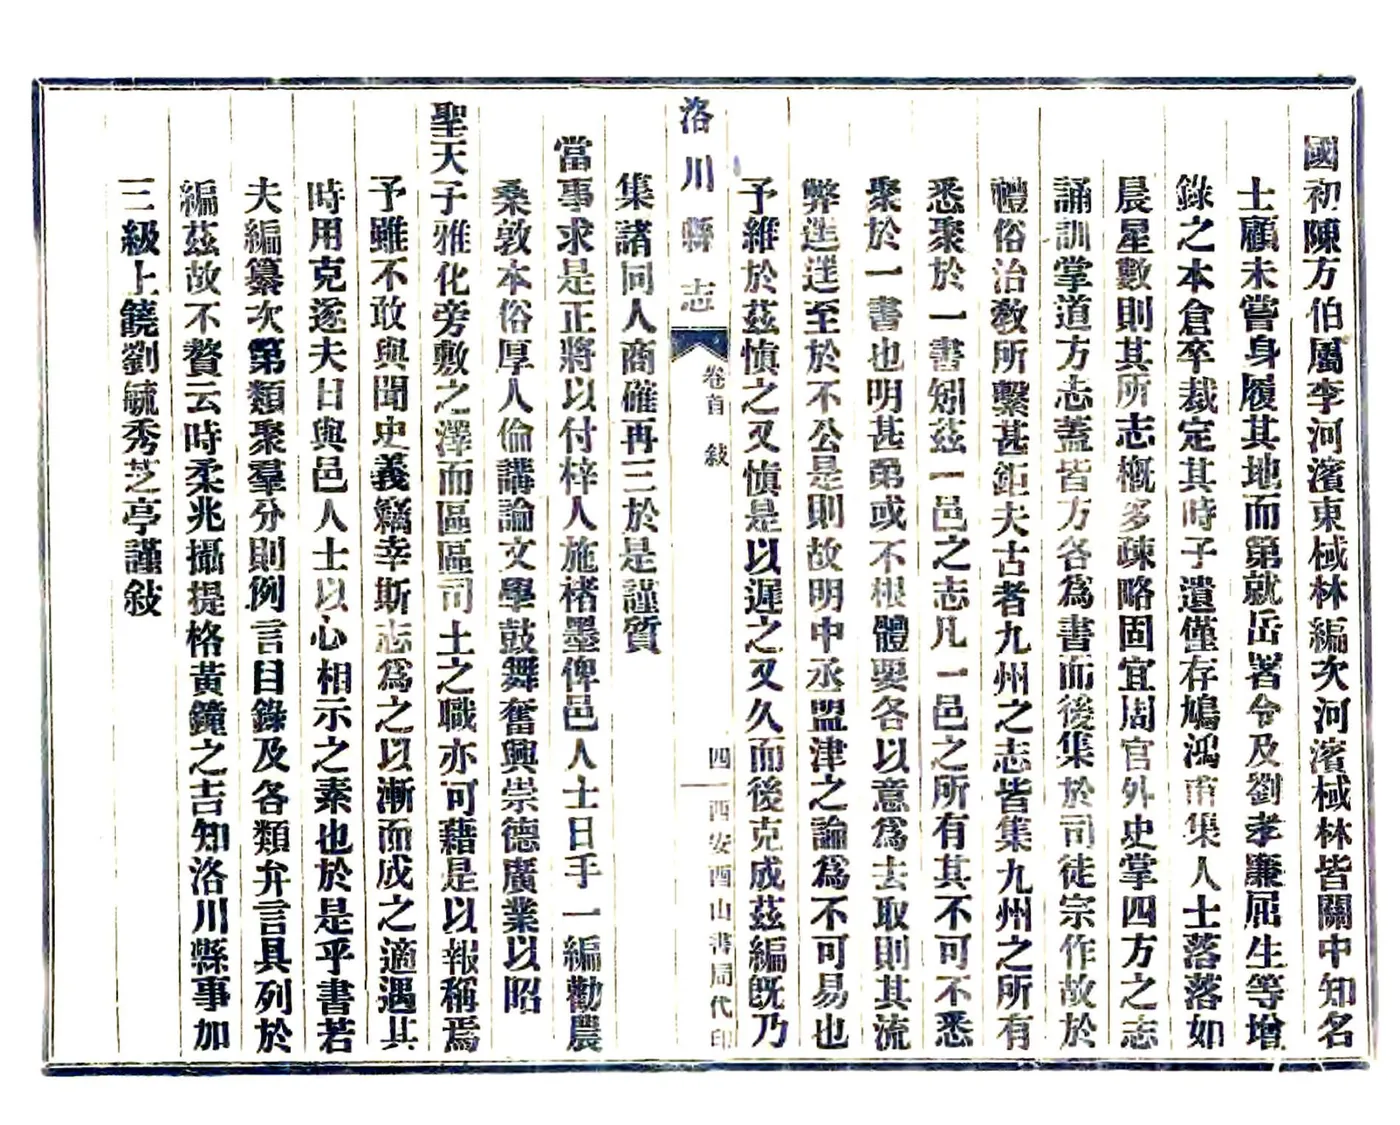 國初陳方伯屬李河濱東棫林編次河濱棫林皆關中知名
士顧未嘗身履其地而第就岳署令及劉孝廉屈生等增
錄之本倉卒裁定其時孑遺僅存鳩鴻甫集人士落落如
晨星數則其所志槪多疎略固宜周官外史掌四方之志
誦訓掌道方志蓋皆方各為書而後集於司徒宗作故於
禮俗治敎所繫甚鉅夫古者九州之志皆集九州之所有
悉聚於一書矧茲一邑之志凡一邑之所有其不可不悉
聚於一書也明甚第或不根體要各以意為去取則其流
弊迣迣至於不公是則故明中丞盟津之論為不可易也
予維於茲慎之又慎是以遲之又久而後克成茲編旣乃
洛川縣志
卷首 敍
四
西安酉山書局代印
集諸同人商確再三於是謹質
當事求是正將以付梓人施楮墨俾邑人士日手一編勸農
桑敦本俗厚人倫講論文學鼓舞奮興崇德廣業以昭
聖天子雅化旁敷之澤而區區司土之職亦可藉是以報稱焉
予雖不敢與聞史義竊幸斯志為之以漸而成之適遇其
時用克遂夫日與邑人士以心相示之素也於是乎書若
夫編纂次第類聚羣分則例言目錄及各類弁言具列於
編茲故不贅云時柔兆攝提格黃鐘之吉知洛川縣事加
三級上饒劉毓秀芝亭謹敍